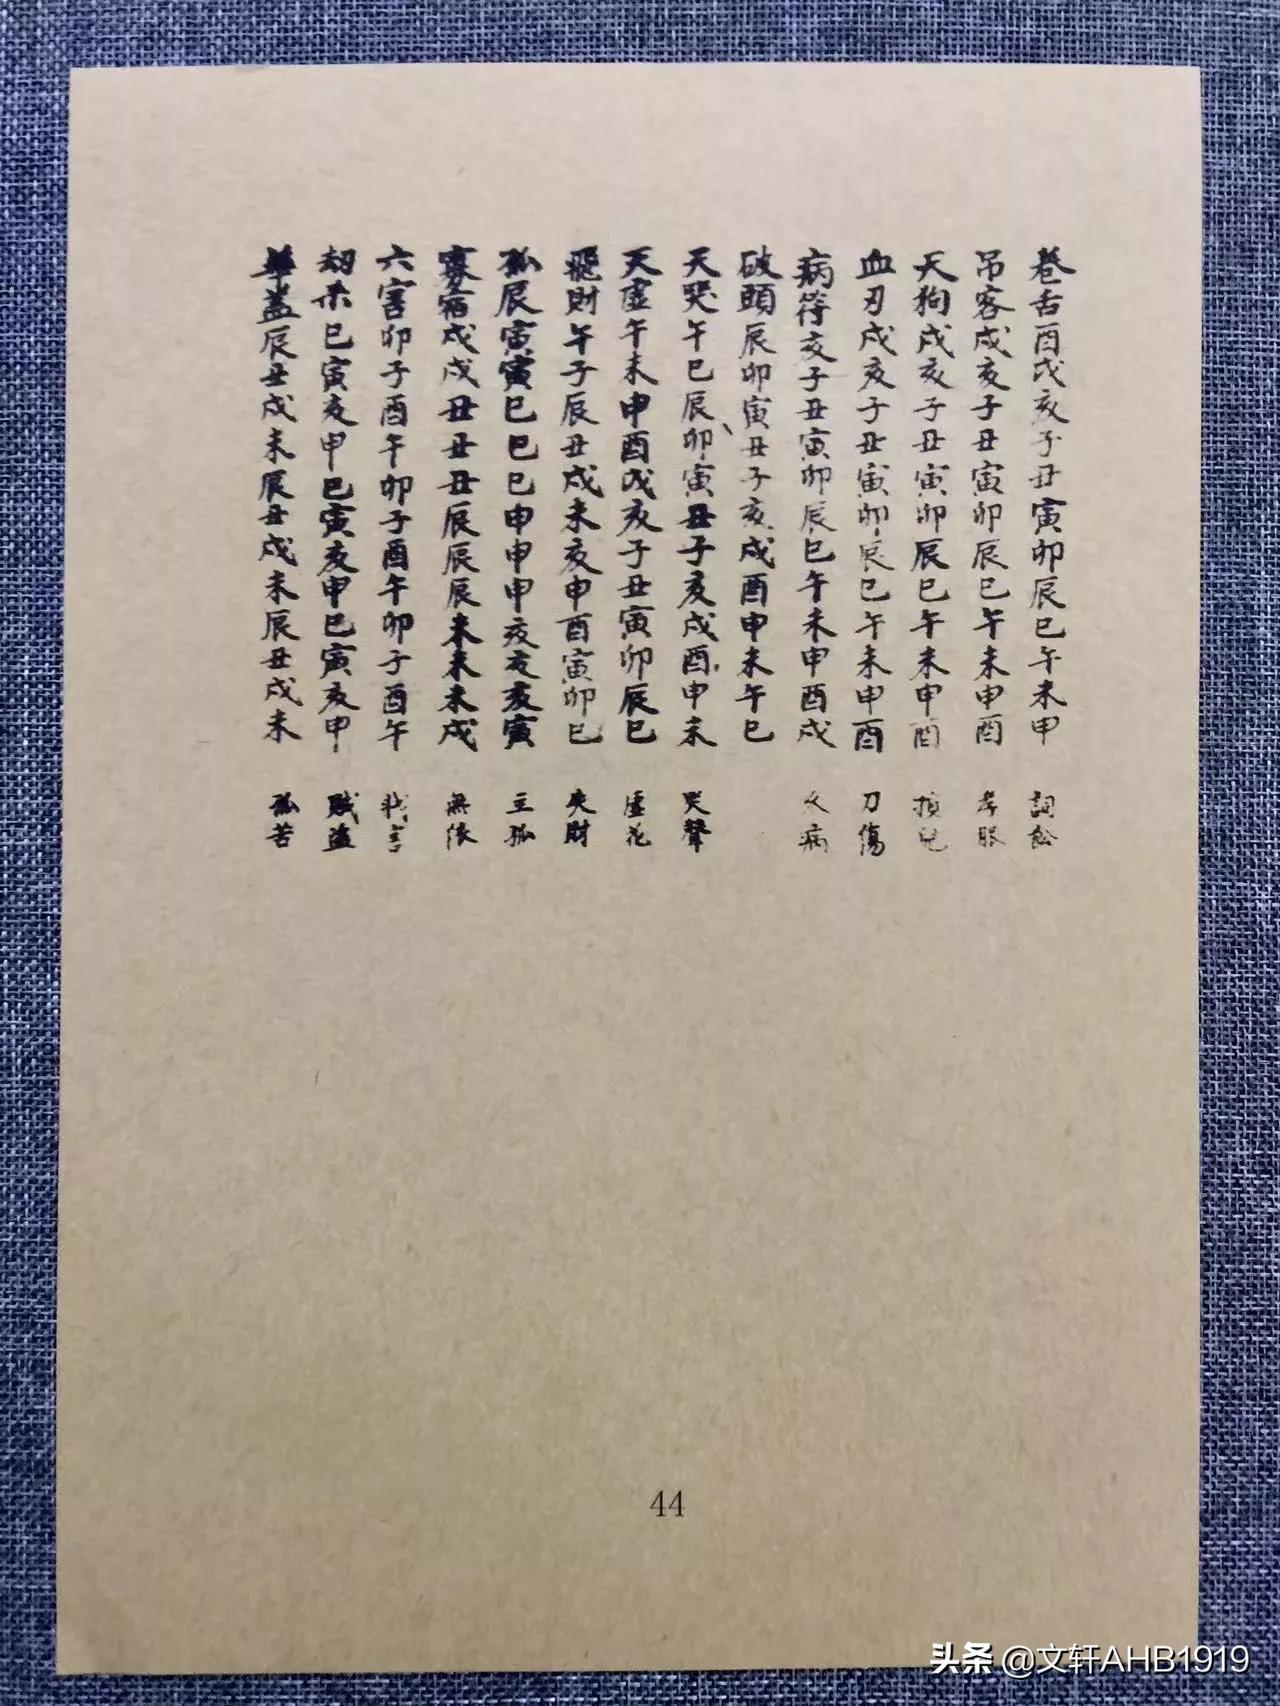 卷舌酉戌亥子丑寅卯辰巳午未申 詞訟
吊客戌亥子丑寅卯辰巳午未申酉 孝服
天狗戌亥子丑寅卯辰巳午未申酉 損兒
血刃戌亥子丑寅卯辰巳午未申酉 刀傷
病符亥子丑寅卯辰巳午未申酉戌 久病
破頭辰卯寅丑子亥戌酉申未午巳
天哭午巳辰卯寅丑子亥戌酉申未 哭聲
天虛午未申酉戌亥子丑寅卯辰巳 虛花
飛財午子辰丑戌未亥申酉寅卯巳 失財
孤辰寅寅巳巳巳申申申亥亥亥寅 主孤
寡宿戌戌丑丑丑辰辰辰未未未戌 無依
六害卯子酉午卯子酉午卯子酉午
劫杀巳寅亥申巳寅亥申巳寅亥申 賊盜
華盖辰丑戌未辰丑戌未辰丑戌未 孤苦
44
头条 @文轩AHB1919